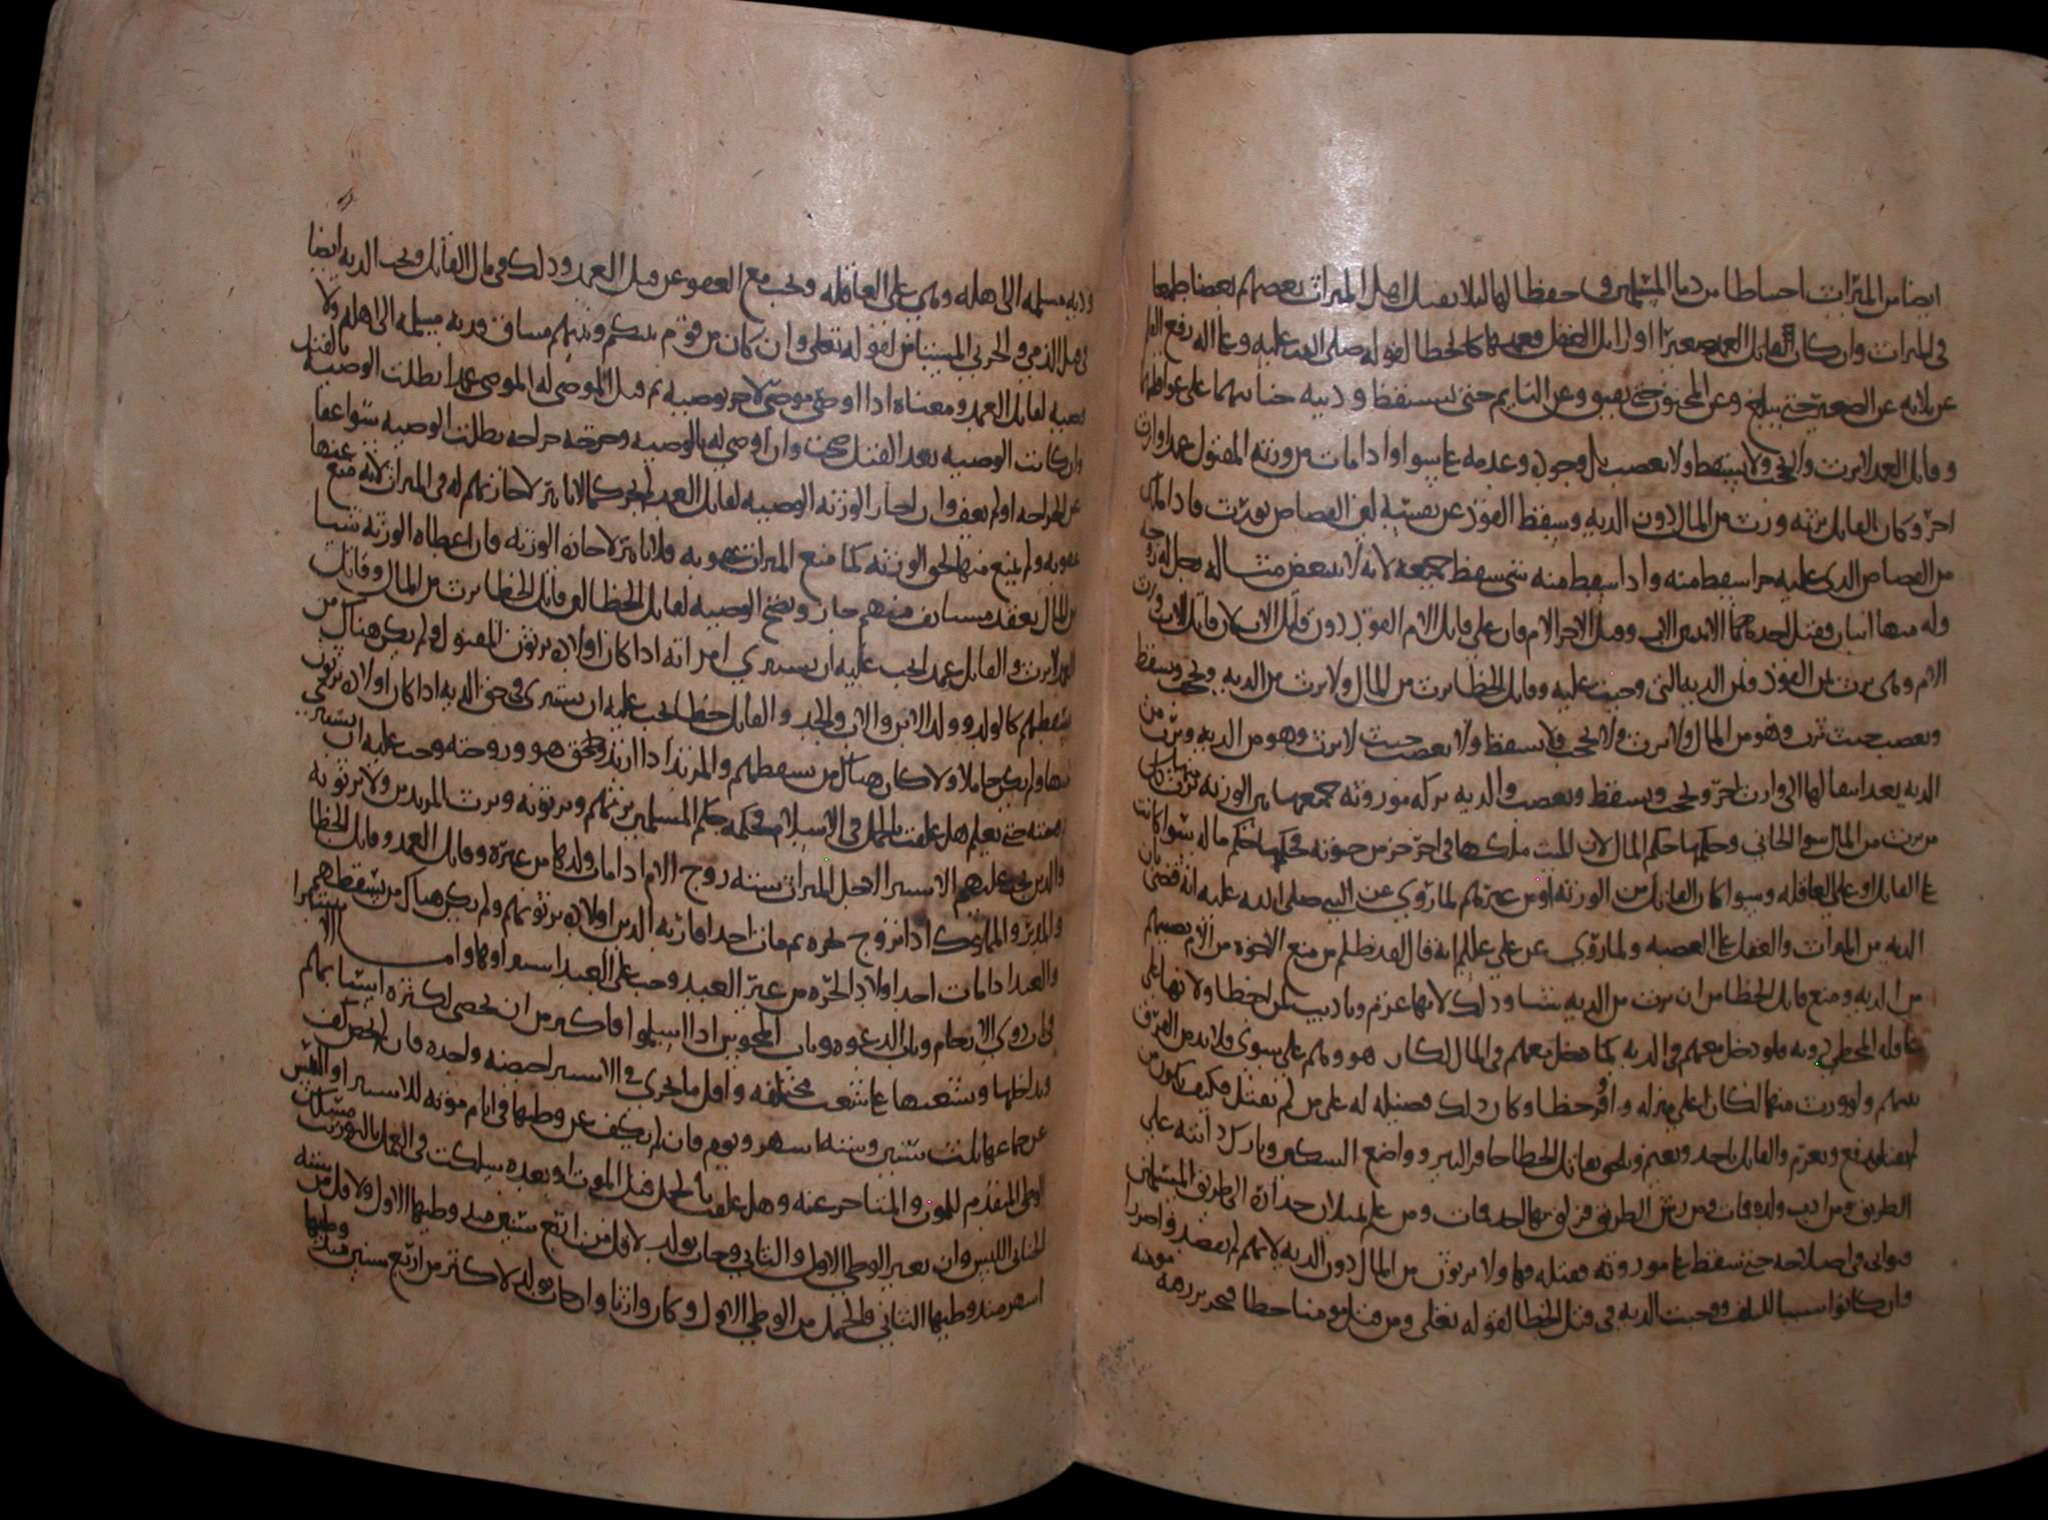 ايضا من الميراث احتياطا من دما المسلمين و حفظا لها ليلا يقتل اهل الميراث بعضهم بعضا طمعا
في الميراث وان كان القاتل العمد صغيرا او زايل العقل فعمدهما كالخطا لقوله صلى الله عليه وعلى اله رفع القلم
عن ثلاثه عن الصغير حتى يبلغ وعن المجنون حتى يفيق وعن النايم حتى يستيقظ ودية جنايتهما على عواقلهما
وقاتل العمد لا يرث ولا يحجب ولا يسقط ولا يعصب بل وجوده وعدمه على سوا واذا مات من ورثة المقتول عمدا وارث
اخر وكان القاتل يرثه ورث من المال دون الدية وسقط القود عن نصيبه لغى القصاص
من القصاص الذي عليه جزا سقط منه واذا سقط منه شي سقط جميعه لانه لا يتبعض مثاله رجل له زوجه
وله منها ابنان فقتل احدهما الاب وقتل الاخر الام فان على قاتل الام القود دون قاتل الاب لان قاتل الاب ورث
الام وهي ترث من القود ثمن الدية التي وجبت عليه وقاتل الخطا يرث من المال ولا يرث من الدية ويحجب ويسقط
ويعصب حيث يرث وهو من المال ولا يرث ولا يحجب ولا يسقط ولا يعصب حيث لا يرث وهو من الدية ويرث من
الدية بعد انتقالها الى وارث اخر ويحجب ويسقط ويعصب والدية تركة موروثة جميعها بين الورثة يرث منها كل
من يرث من المال سوا الجاني وحكمها حكم المال لان الميت ملكها في اخر جز من حيوته فحكمها حكم ماله سوا كانت
على القاتل او على العاقله وسوا كان القاتل من الورثة او من غيرهم لما روي عن النبي صلى الله عليه انه قضى بان
الدية من الميراث والعقل على العصبه ولما روي عن علي عليلم انه قال لقد ظلم من منع الاخوة من الام نصيبهم
من الدية ومنع قاتل الخطا من ان يرث من الدية شيا وذلك لانها غرم وتاديب لمن اخطا ولانها على
عاقله المخطي دونه فلو دخل معهم في الدية كما دخل معهم في المال لكان هو وهم على سوى فلا بد من الفرق
بينهم ولو ورث منها لكان اعلى منزله و حظا وكان ذلك فضيله له على من لم يقتل فكيف يكون من
لم يقتل يدفع ويغرم والقاتل ياخذ ويغنم ويلحق بقاتل الخطا حافر البير وواضع السكين وتارك دابته على
الطريق ومن ادب ولده فمات ومن رش الطريق فزلق بها احد فمات ومن علم بميلان جداره الى طريق المسلمين
فتوانى في اصلاحه حتى سقط على موروثه فقتله فهاولا يرثون من المال دون الدية لانهم لم يقصدوا ضررا
وان كانوا سببا للتلف ووجبت الدية في قتل الخطا لقوله تعالى ومن قتل مومنا خطا فتحرير رقبة مومنه
ودية مسلمه الى اهله وهي على العاقله وتجب مع العفو عن قتل العمد وذلك في مال القاتل وتجب الدية ايضا
في قتل الذمي والحربي المستامن لقوله تعالى وان كان من قوم بينكم وبينهم ميثاق فدية مسلمه الى اهله ولا
وصيه لقاتل العمد ومعناه اذا اوصى موصي لاخر بوصيه ثم قتل الموصى له الموصي عمدا بطلت الوصيه بالقتل
وان كانت الوصيه بعد القتل صحت وان اوصى له بالوصيه وجرحه جراحه بطلت الوصيه سوا عفا
عن الجراحه او لم يعف وان اجاز الورثه الوصيه لقاتل العمد لم يجز كما لا تاثير لاجازتهم له في الميراث لانه منع منها
عقوبه ولم يمنع منها لحق الورثه كما منع الميراث عقوبه فلا تاثير لاجازه الورثه فان اعطاه الورثه شيا
من المال بعقد مستانف منهم جاز وتصح الوصيه لقاتل الخطا لان قاتل الخطا يرث من المال وقاتل
العمد لا يرث والقاتل عمدا يجب عليه ان يستبري امراته اذا كان اولاده يرثون المقتول ولم يكن هناك من
يسقطهم كالولد وولد الابن والاب والجد والقاتل خطا يجب عليه ان يستبري في حق الدية اذا كان اولاده يرثون
منها ولم يكن حاملا ولا كان هناك من يسقطهم والمرتد اذا ارتد ولحق هو وزوجته وجب عليه ان يستبري
زوجته حتى يعلم هل علقت بالحمل في الاسلام فحكمه حكم المسلمين يرثهم ويرثونه ويرث المرتدين ولا يرثونه
والذين يجب عليهم الاستبرا لاجل الميراث سته زوج الام اذا مات ولدها من غيره وقاتل العمد وقاتل الخطا
والمرتد والمملوك اذا تزوج حره ثم مات احد اقاربه الذين اولاده يرثونهم ولم يكن هناك من يسقطهم
والعبد اذا مات احد اولاد الحره من غير العبد وجب على العبد استبراوها وامـــا الاستبرا
في ذوي الارحام وباب الدعوه وباب المجوس اذا اسلموا فاكثر من ان تحصى لكثره اسبابهم
وتداخلها وتشعبها على شعب مختلفه واقل ما يجزي في الاستبرا حيضه واحده فان لم تحض كف
عن جماعها ثلث سنين وسته اشهر ويوم فان لم يكف عن وطيها في ايام موته للاستبرا والتبس
الوطي المتقدم للموت والمتاخر عنه وهل علقت بالحمل قبل الموت او بعده سلكت في العمل بالتوريث مسلك
الخناثى اللبس وان تغير الوطي الاول والثاني وجات بولد لاقل من اربع سنين منذ وطيها الاول ولاقل من سته
اشهر منذ وطيها الثاني فالحمل من الوطي الاول وكان وارثا وان جات بولد لاكثر من اربع سنين منذ وطيها